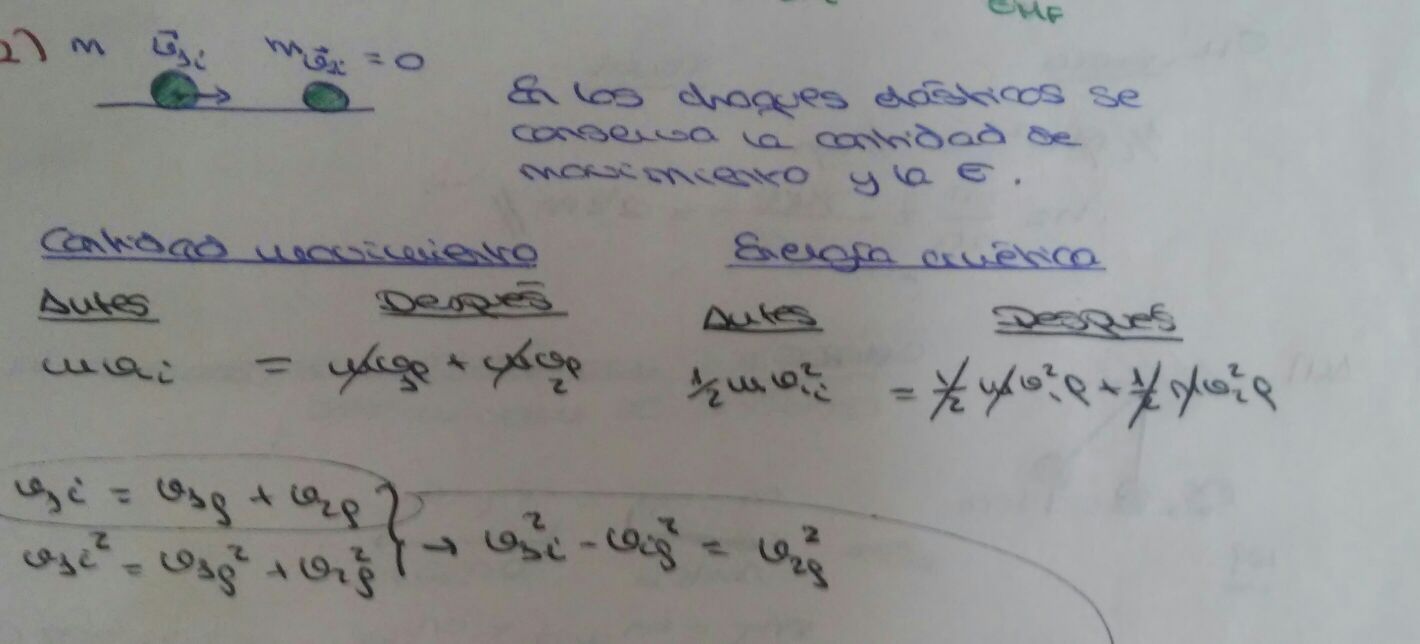 CMF
2) m v⃗₁ᵢ m v⃗₂ᵢ = 0
En los choques elásticos se
conserva la cantidad de
movimiento y la E.
Cantidad movimiento
Antes Después
mvᵢ = mv₁f + mv₂f
Energía cinética
Antes Después
1/2 mv₁ᵢ² = 1/2 mv₁²f + 1/2 mv₂²f
v₁ᵢ = v₁f + v₂f
v₁ᵢ² = v₁f² + v₂f² } → v₁ᵢ² - v₁f² = v₂f²